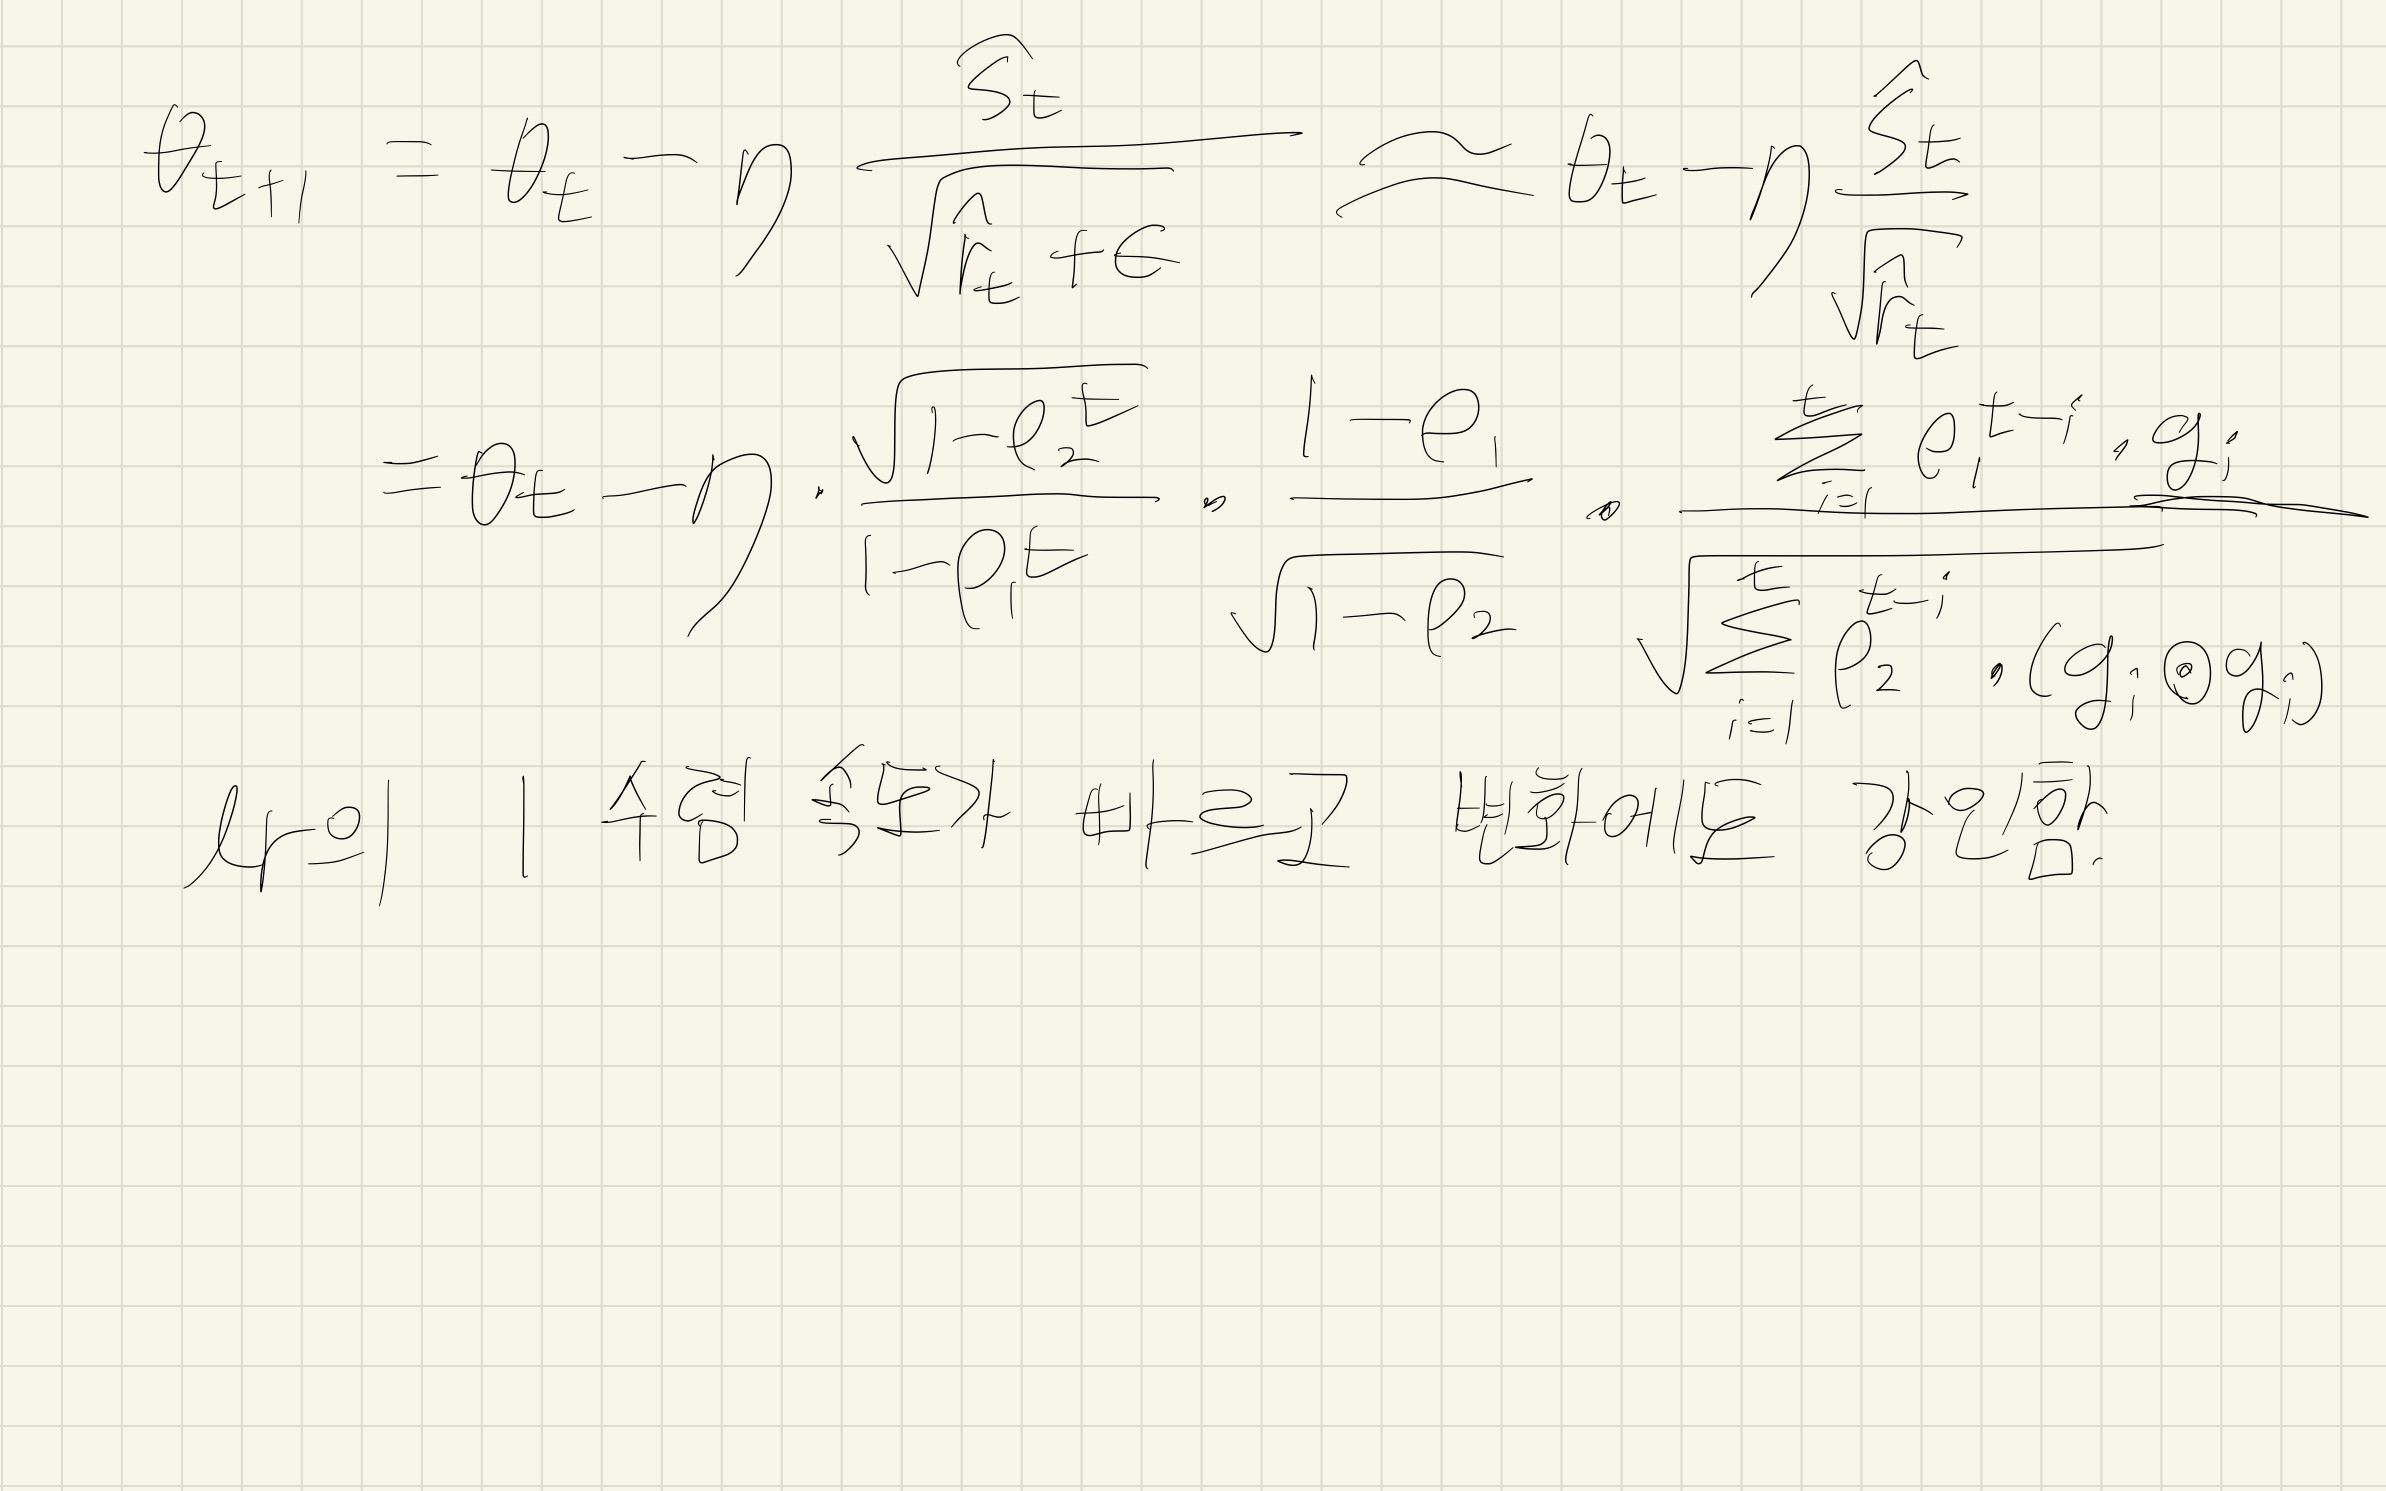 θ_{t+1} = θ_t - η \frac{\hat{s}_t}{\sqrt{\hat{r}_t + ε}} ≈ θ_t - η \frac{\hat{s}_t}{\sqrt{\hat{r}_t}}
= θ_t - η · \frac{\sqrt{1-ρ_2^t}}{1-ρ_1^t} · \frac{1-ρ_1}{\sqrt{1-ρ_2}} · \frac{\sum_{i=1}^{t} ρ_1^{t-i} · g_i}{\sqrt{\sum_{i=1}^{t} ρ_2^{t-i} · (g_i ⊙ g_i)}}
수렴 속도가 빠르고 변화에도 강인함.